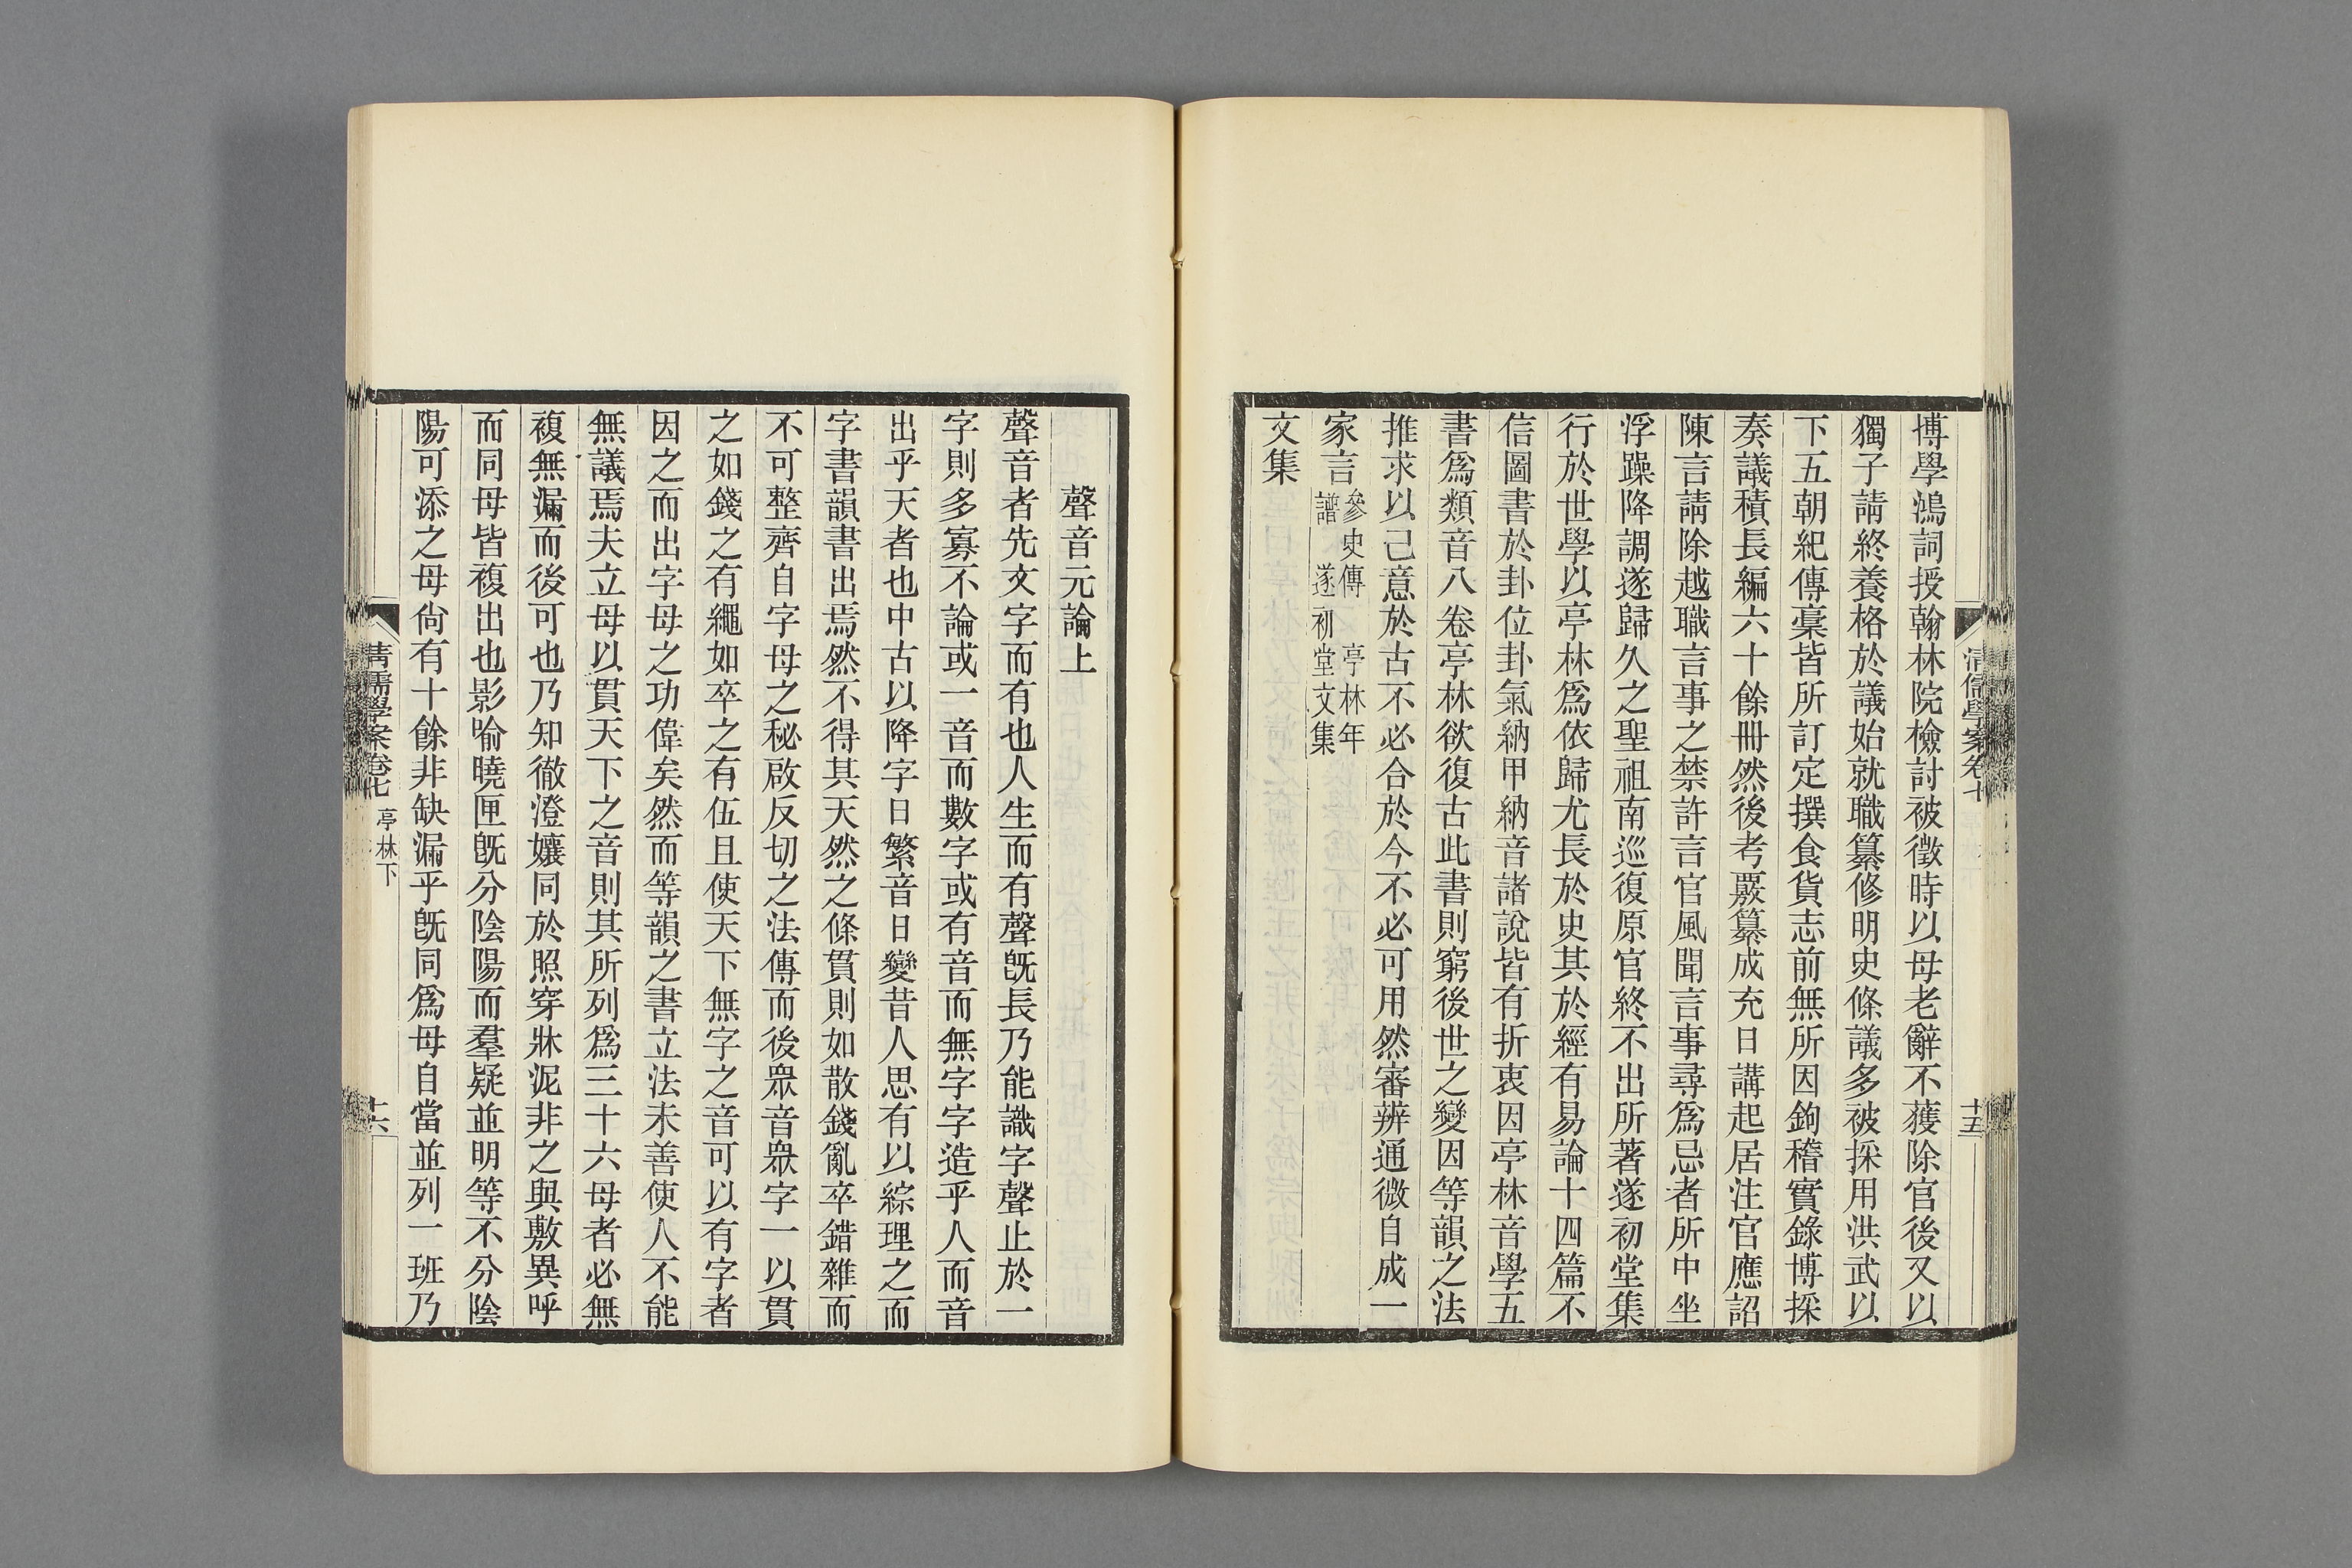 博學鴻詞授翰林院檢討被徵時以母老辭不獲除官後又以
獨子請終養格於議始就職纂修明史條議多被採用洪武以
下五朝紀傳稾皆所訂定撰食貨志前無所因鉤稽實錄博採
奏議積長編六十餘冊然後考覈纂成充日講起居注官應詔
陳言請除越職言事之禁許言官風聞言事尋爲忌者所中坐
浮躁降調遂歸久之聖祖南巡復原官終不出所著遂初堂集
行於世學以亭林爲依歸尤長於史其於經有易論十四篇不
信圖書於卦位卦氣納甲納音諸說皆有折衷因亭林音學五
書爲類音八卷亭林欲復古此書則窮後世之變因等韻之法
推求以己意於古不必合於今不必可用然審辨通微自成一
家言
參史傳 亭林年
譜 遂初堂文集
文集
清儒學案卷七
十五
聲音元論上
聲音者先文字而有也人生而有聲旣長乃能識字聲止於一
字則多寡不論或一音而數字或有音而無字字造乎人而音
出乎天者也中古以降字日繁音日變昔人思有以綜理之而
字書韻書出焉然不得其天然之條貫則如散錢亂卒錯雜而
不可整齊自字母之秘啟反切之法傳而後衆音衆字一以貫
之如錢之有繩如卒之有伍且使天下無字之音可以有字者
因之而出字母之功偉矣然而等韻之書立法未善使人不能
無議焉夫立母以貫天下之音則其所列爲三十六母者必無
複無漏而後可也乃知徹澄孃同於照穿牀泥非之與敷異呼
而同母皆複出也影喻曉匣旣分陰陽而羣疑並明等不分陰
陽可添之母尙有十餘非缺漏乎旣同爲母自當並列一班乃
清儒學案卷七 亭林下
十六